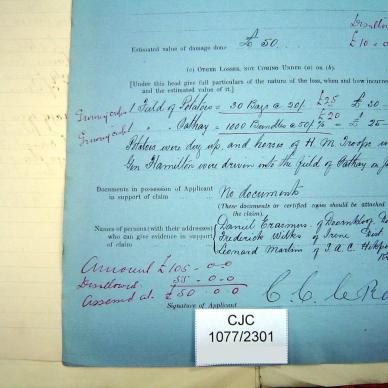 Disallow
£10 = 0
Estimated value of damage done £ 50
(c) OTHER LOSSES, NOT COMING UNDER (a) OR (b).
[Under this head give full particulars of the nature of the loss, when and how incurred
and the estimated value of it.]
1 Field of Potatoes = 30 Bags @ 20/- £25 £ 30
£20
" Oathay = 1000 Bundles @ 50/- % = £ 25
Potatoes were dug up, and horses of H M Troops
Gen Hamilton were driven into the field of Oathay
Documents in possession of Applicant
in support of claim
No documents
(These documents or certified copies should be attached
the claim).
Names of persons (with their addresses)
who can give evidence in support
of claim
Daniel Erasmus of Doornkloof
Frederick Wilkes of Irene
Leonard Martin of S.A.C.
Amount £105 - 0 - 0
Disallowed 55 - 0 - 0
Assessed at £ 50 0 0
Signature of Applicant
CJC
1077/2301